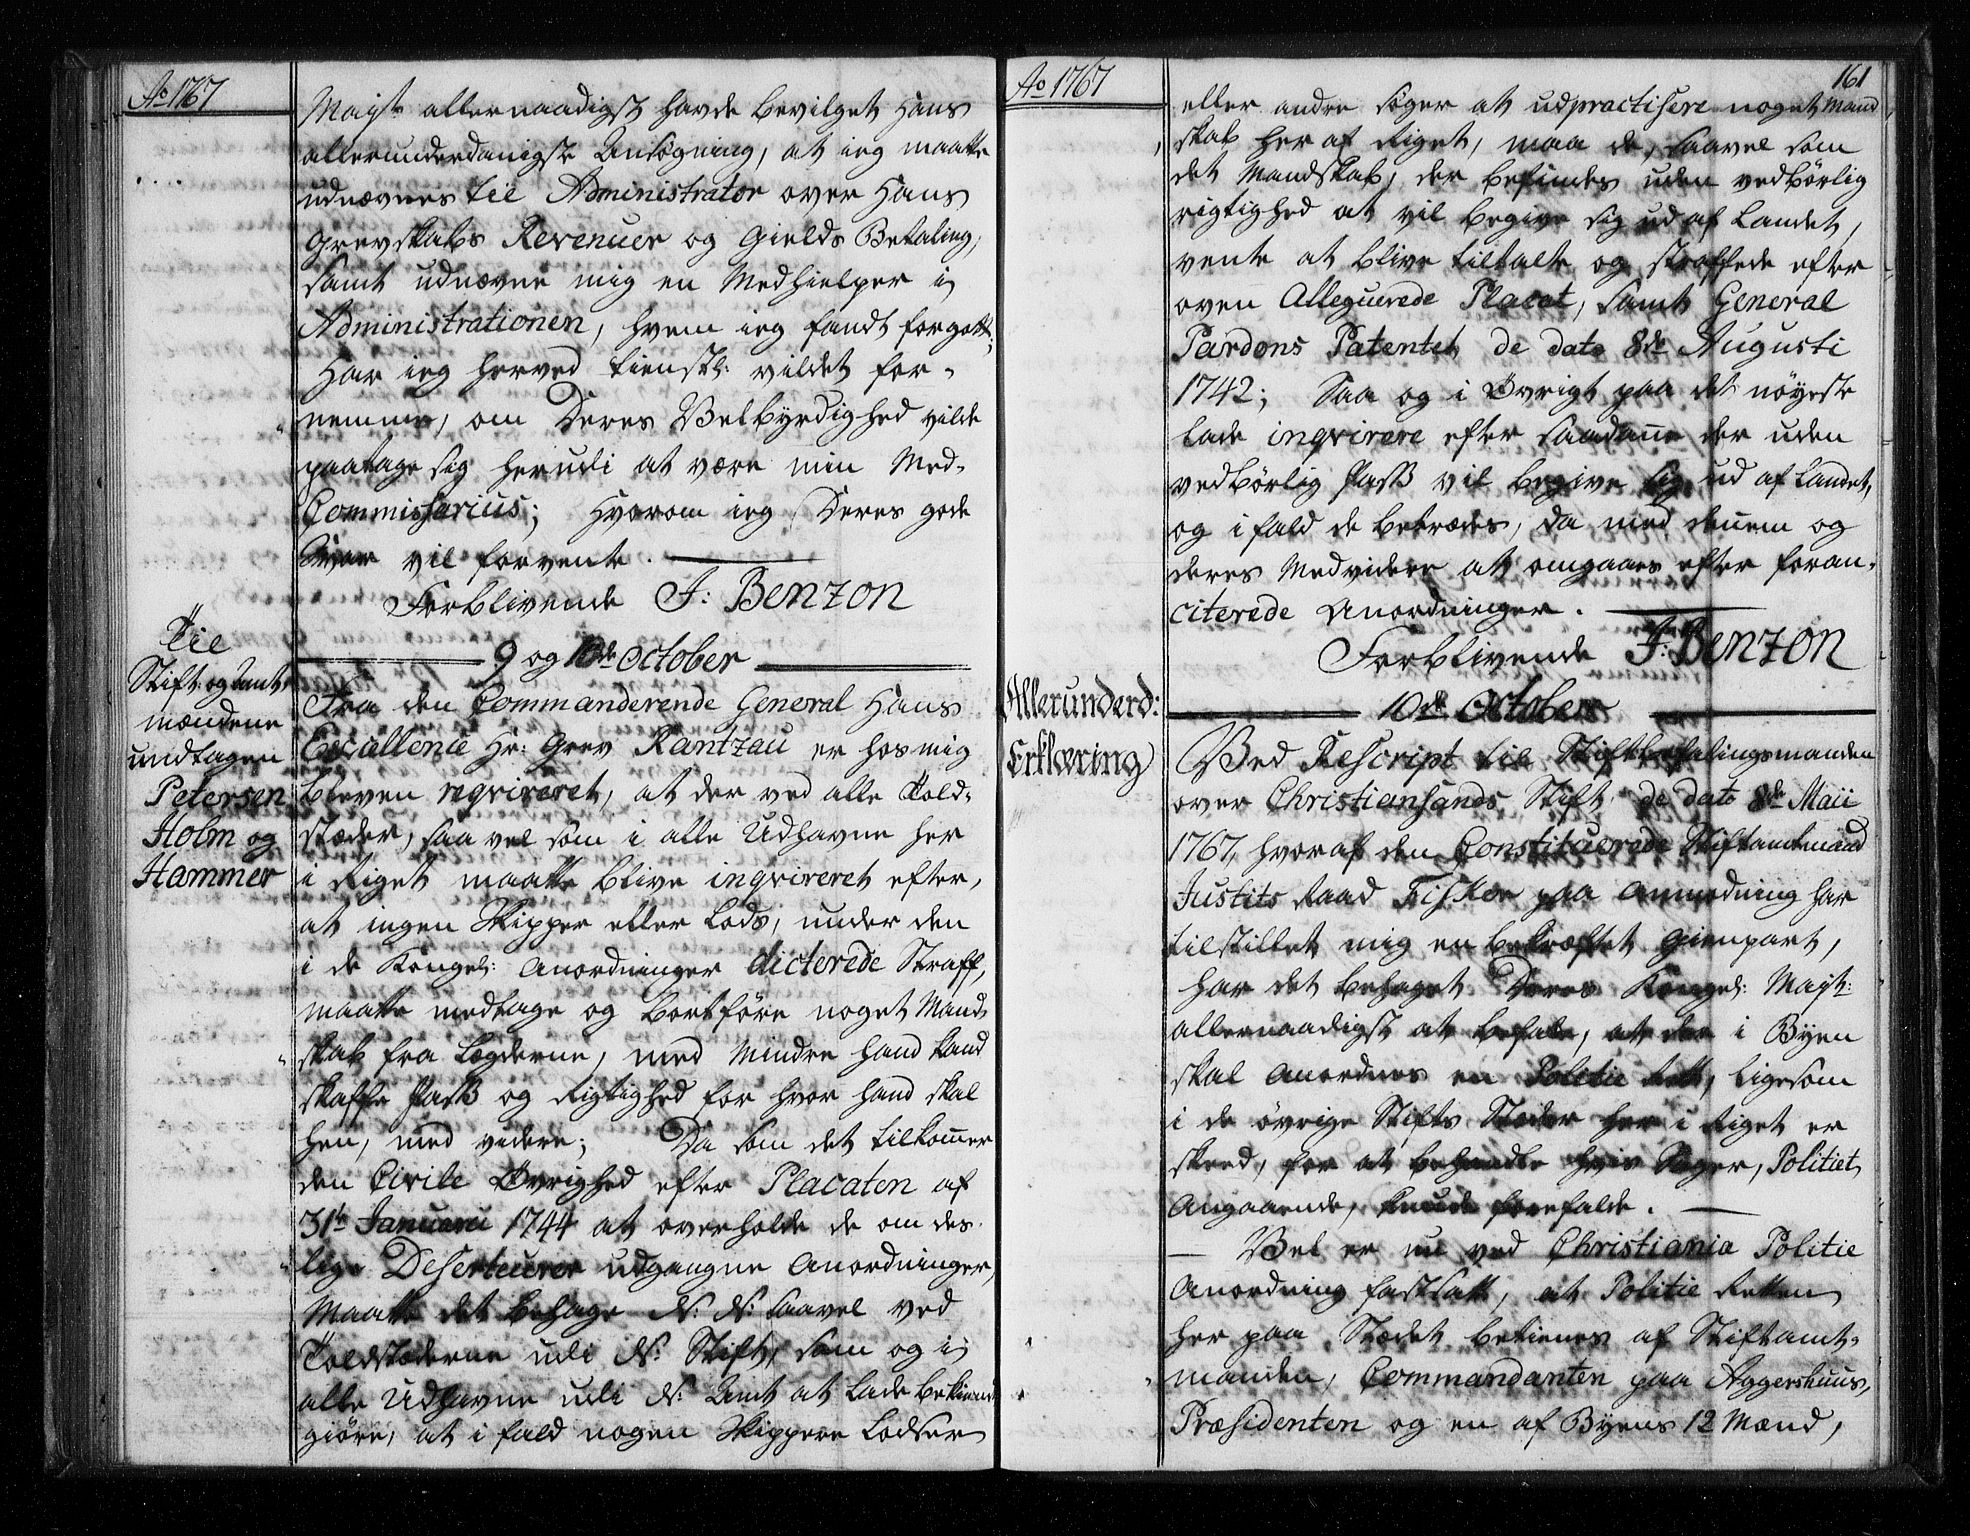 Ao 1767
Mayst allernaadigst havde bevilget Hans
allerunderdanigste Ansøgning, at ieg maatte
udnævnes til Administrator over Hans
Grevskabs Revenuer og Gields Betaling,
samt udnævne mig en Medhielper i
Administrationen, hvem ieg fandt forgott;
Har ieg herved tienstl: vildet for-
nemme, om Deres Velbyrdighed vilde
paatage sig herudi at være min Med-
Commissarius; Hvorom ieg Deres gode
Svar vil forvente.
Forblivende J: Benzon
9 og 10de October
Til
Stift: og Amt
mændene
undtagen
Petersen
Holm og
Hammer
Fra den Commanderende General Hans
Excallence Hr: Grev Rantzau er hos mig
bleven reqvireret, at der ved alle Told-
stæder, saa vel som i alle Udhavne her
i Riget maatte blive inqvireret efter,
at ingen Skipper eller Lods, under den
i de Kongel: Anordninger dicterede Straff,
maatte medtage og bortføre noget Mand-
skab fra Lægderne, med mindre hand kand
skaffe Pass og Rigtighed for hvor hand skal
hen, med videre; Da som det tilkommer
den Civile Øvrighed efter Placaten af
31te Januarii 1744 at overholde de om des-
lige Deserteurer udgangne Anordninger,
Maatte det behage D: D: saavel ved
Toldstæderne udi D: Stift, som og i
alle Udhavne udi D: Amt at lade bekiendt
giøre, at i fald nogen Skippere Lodser
Ao 1767
161
eller andre søger at udpractisere noget Mand
skab her af Riget, maa de, saavel som
det Mandskab, der befindes uden vedbørlig
rigtighed at vil begive sig ud af Landet,
vente at blive tiltalte og straffede efter
oven Alleguerede Placat, samt General
Pardons Patentet de dato 8de Augusti
1742; Saa og i Øvrigt paa det nøyeste
lade inqvirere efter saadanne der uden
vedbørlig Pass vil begive sig ud af Landet,
og i fald de betrædes, da med dennem og
deres Medvidere at omgaaes efter foran-
citerede Anordninger.
Forblivende J: Benzon
10de October
Allerunderd:
Erklæring
Ved Rescript til Stiftbefalingsmanden
over Christiansands Stift de dato 8de Maii
1767, hvoraf den Constituerede Stiftamtmand
Justits Raad Fisker paa Anmodning har
tilstillet mig en bekræftet Gienpart,
har det behaget Deres Kongel: Mayst:
allernaadigst at befale, at der i Byen
skal Anordnes en Politie Rett, ligesom
i de øvrige Stifts Stæder her i Riget er
skeed, for at behandle hvis Sager, Politiet
Angaaende, kunde forefalde.
Vel er nu ved Christiania Politie
Anordning fastsatt, at Politie Retten
her paa Stædet betienes af Stiftamt-
manden, Commandanten paa Aggershuus,
Præsidenten og en af Byens 12 Mænd,